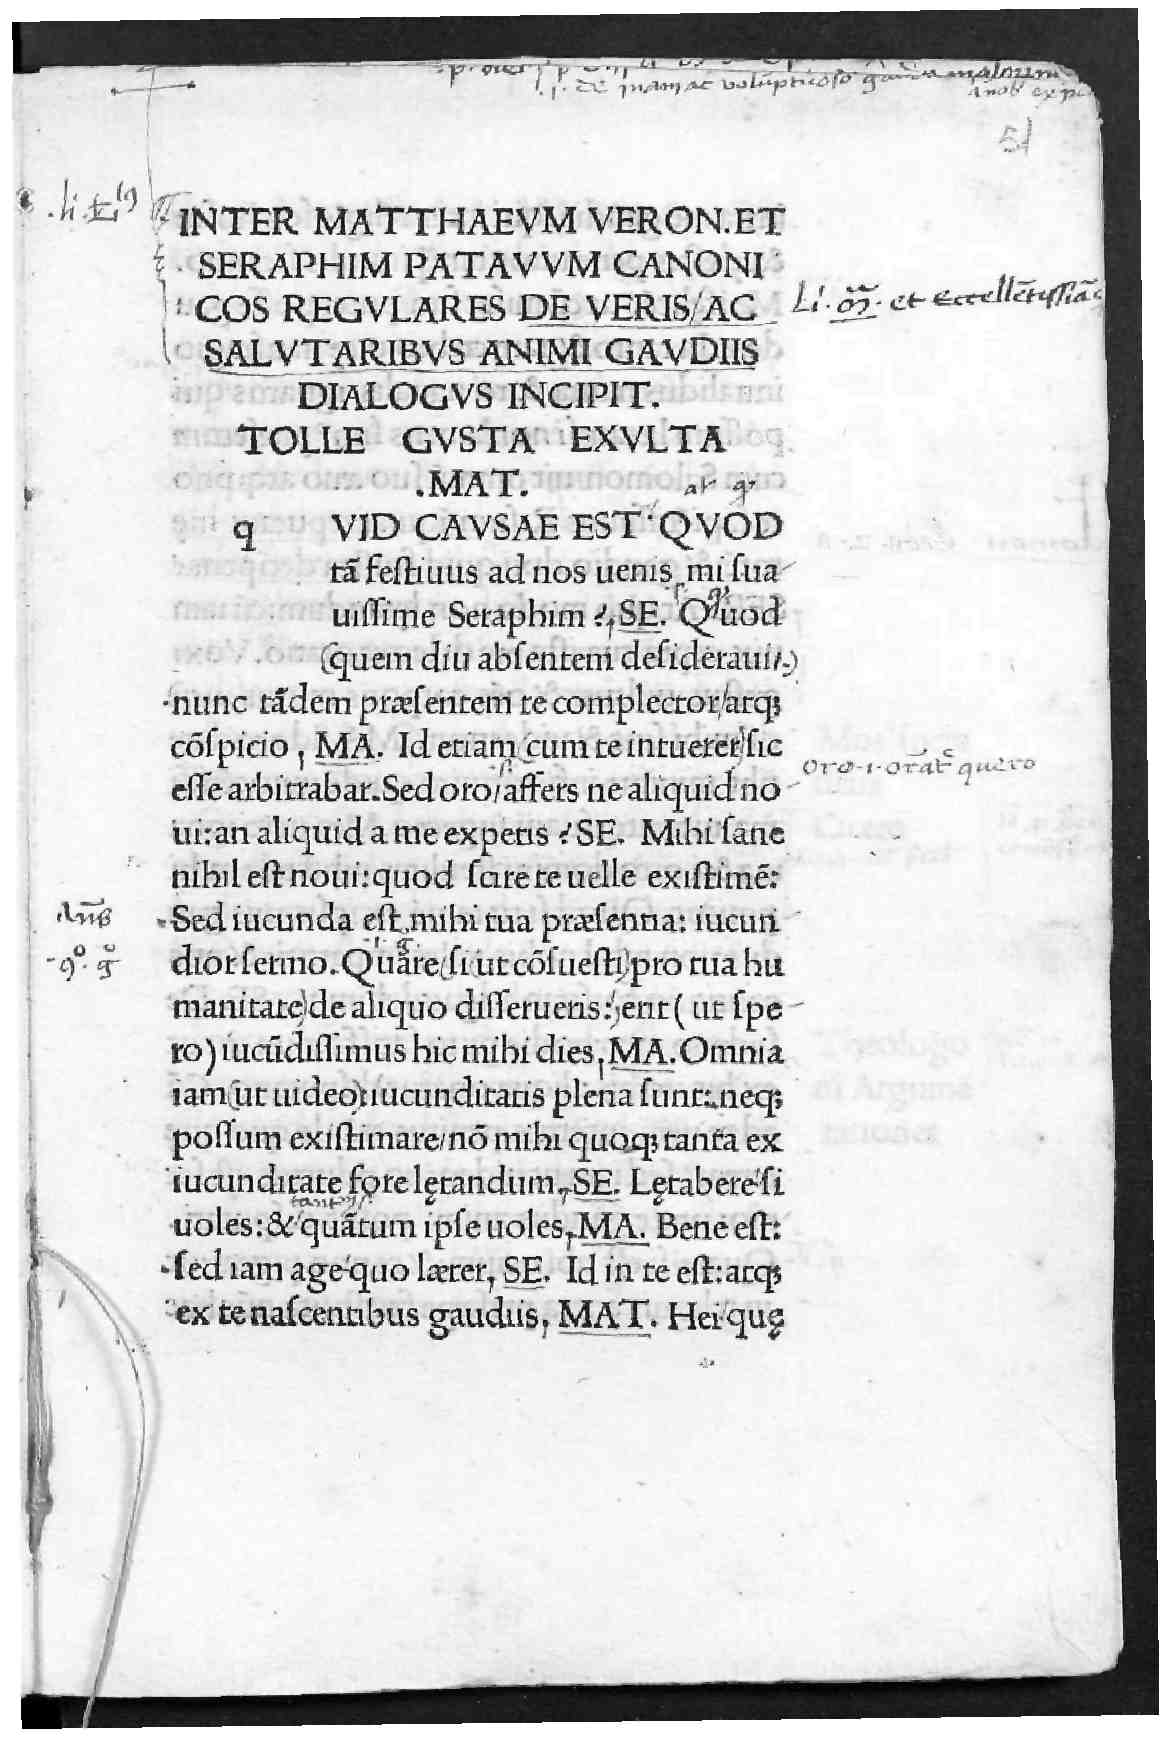 51
INTER MATTHAEVM VERON.ET
SERAPHIM PATAVVM CANONI
COS REGVLARES DE VERIS/AC
SALVTARIBVS ANIMI GAVDIIS
DIALOGVS INCIPIT.
TOLLE GVSTA EXVLTA
.MAT.
q VID CAVSAE EST QVOD
tā feſtiuus ad nos uenis mi ſua
uiſſime Seraphim? SE. Quod
(quem diu abſentem deſideraui)
nunc tādem præſentem te complector/atq;
cōſpicio, MA. Id etiam cum te intuerer ſic
oro .i. orat quero
eſſe arbitrabar. Sed oro/affers ne aliquid no
ui: an aliquid a me expetis? SE. Mihi ſane
nihil eſt noui: quod ſcire te uelle exiſtimē:
Sed iucunda eſt mihi tua præſentia: iucun
dior ſermo. Quare (ſi ut cōſueſti) pro tua hu
manitate de aliquo diſſerueris: erit (ut ſpe
ro) iucūdiſſimus hic mihi dies, MA. Omnia
iam (ut uideo) iucunditatis plena ſunt: neq;
poſſum exiſtimare/nō mihi quoq; tanta ex
iucunditate fore lętandum, SE. Lętabere ſi
uoles: & quātum ipſe uoles, MA. Bene eſt:
ſed iam age quo læter, SE. Id in te eſt: atq;
ex te naſcentibus gaudiis, MAT. Hei quę